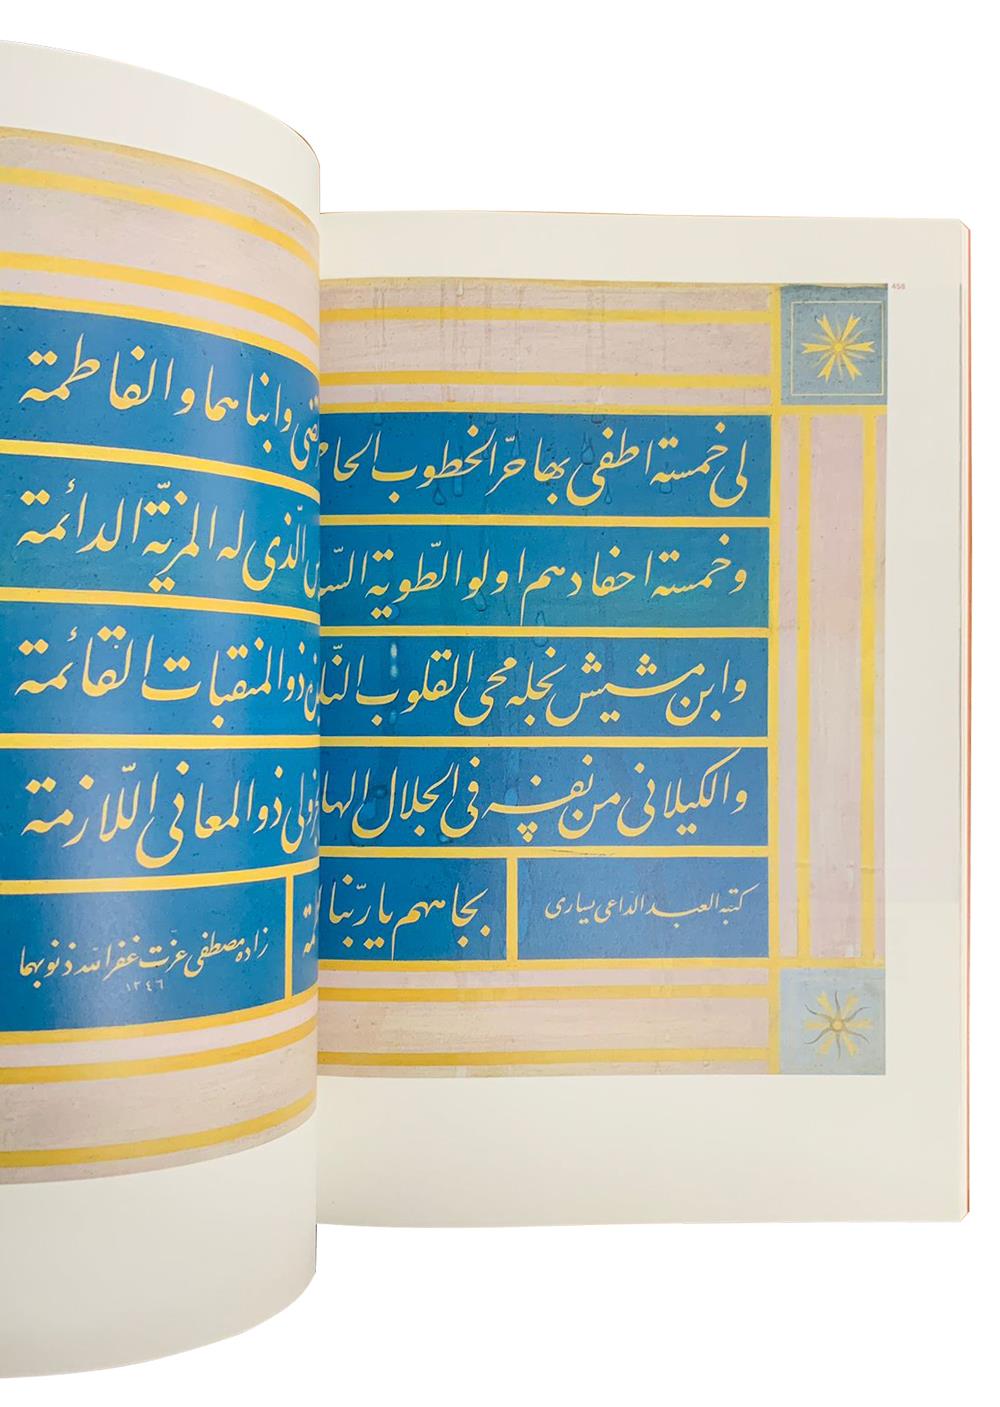 458
لى خمسة اطفى بها حرّ الخطوب وابناهما والفاطمة
وخمسة احفادهم اولو الطّوية الّذى له المزيّة الدائمة
وابن مشيش نجله محى القلوب ذو المنقبات القائمة
والكيلانى من نفسه فى الجلال ذو المعانى اللّازمة
كتبه العبد الداعى يسارى
بجاههم يا ربّنا
زاده مصطفى عزّت غفر الله ذنوبهما
١٢٤٦